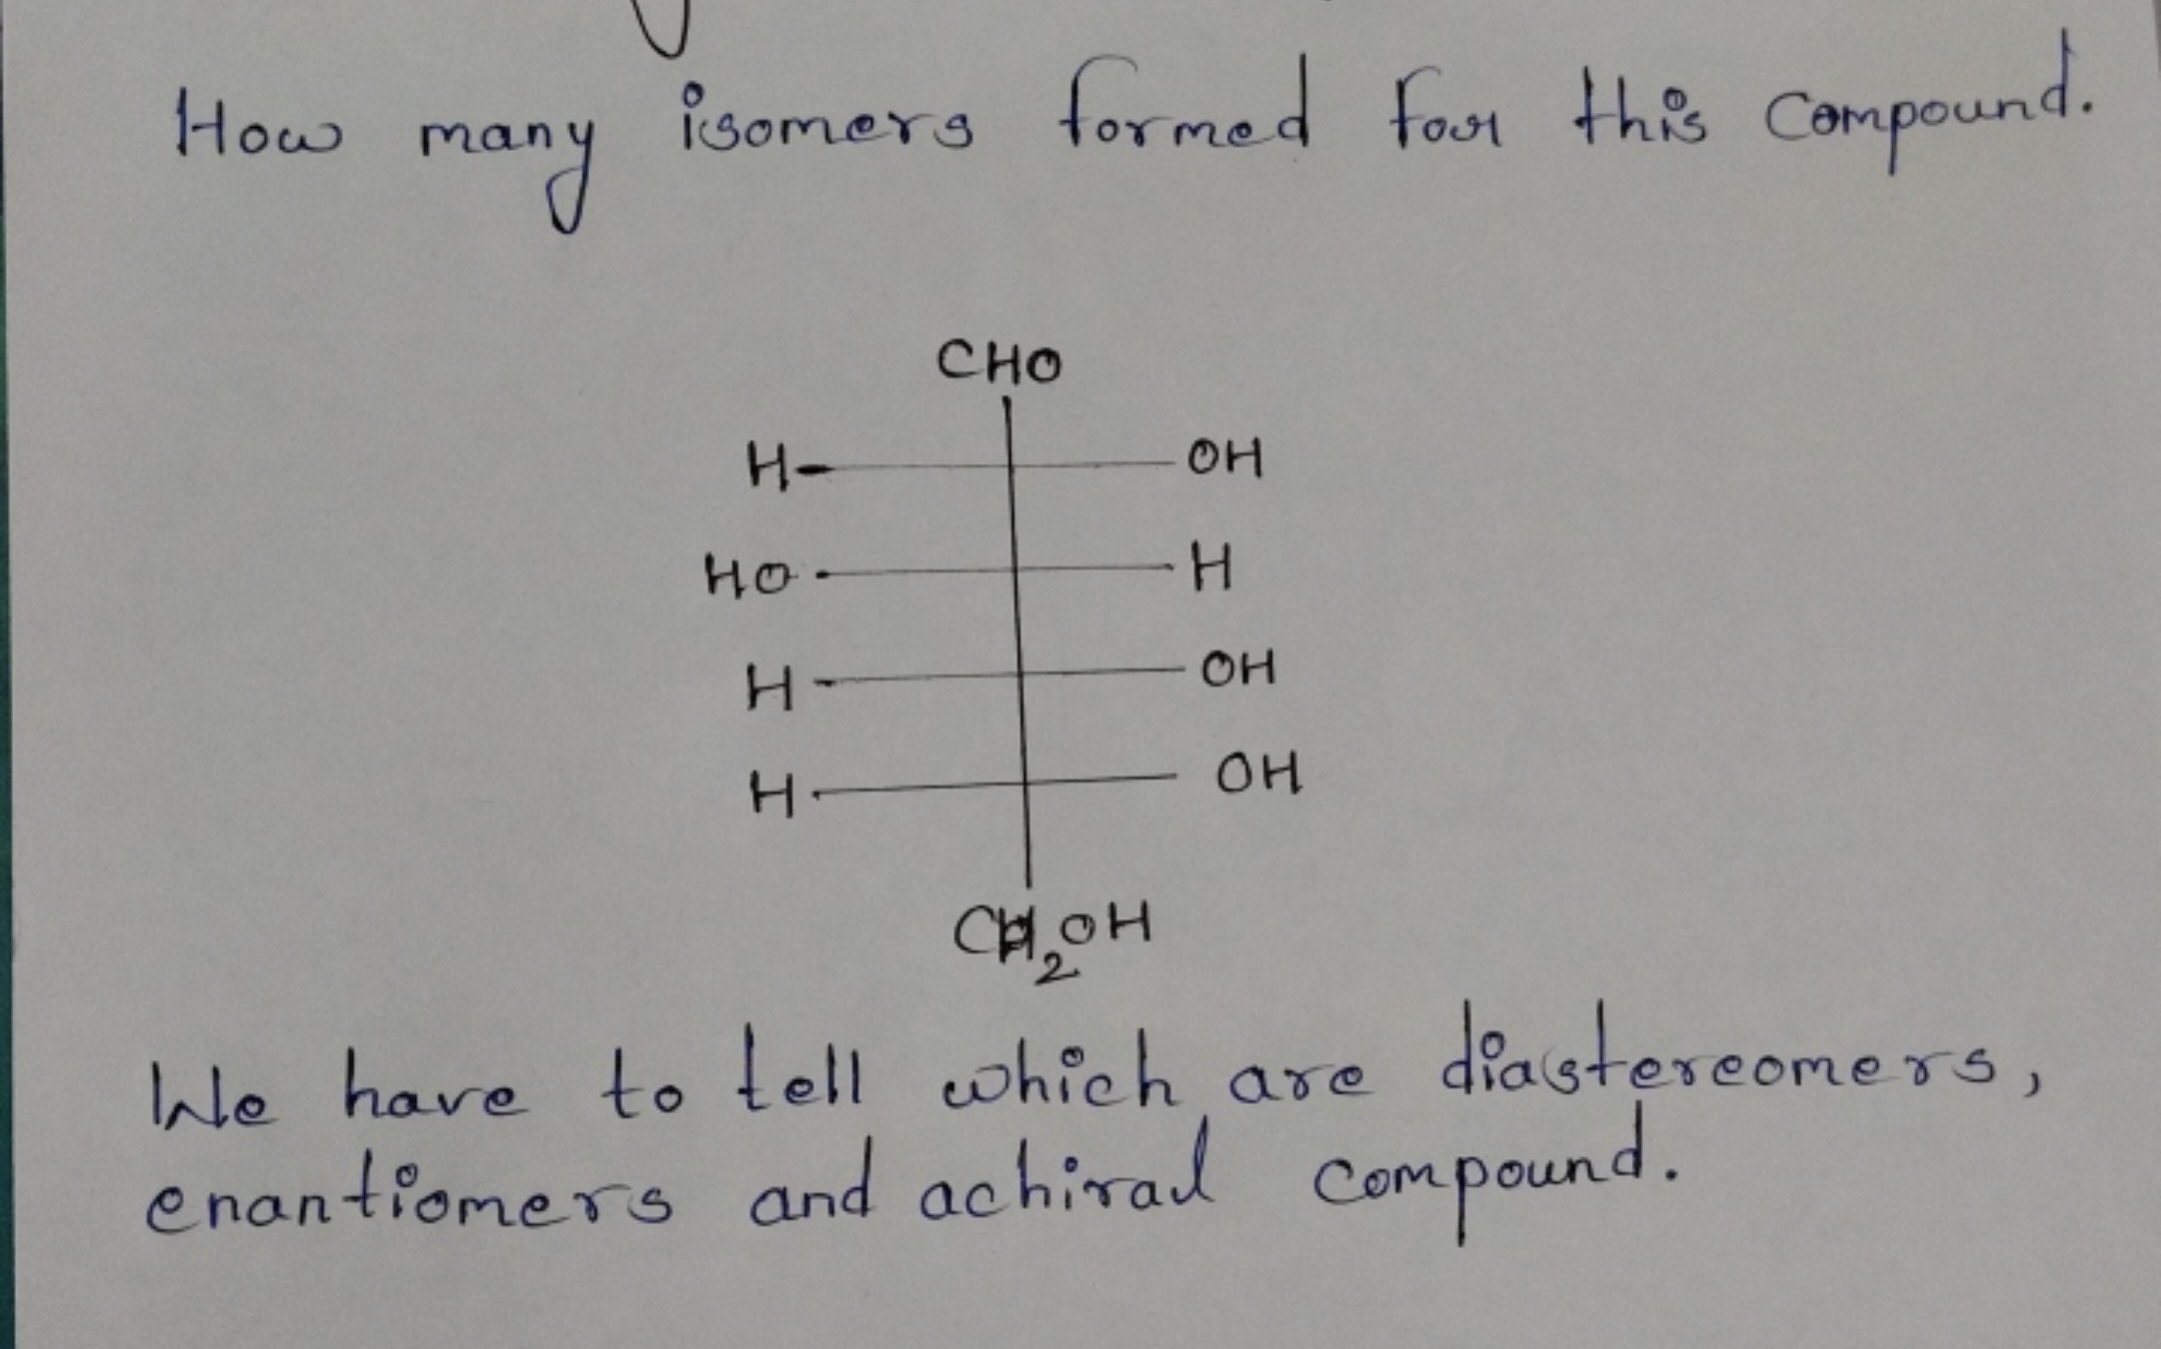 How many isomers formed for this compound.
CHO
H OH
HO H
H OH
H OH
CH₂OH
We have to tell which are diastereomers,
enantiomers and achiral compound.